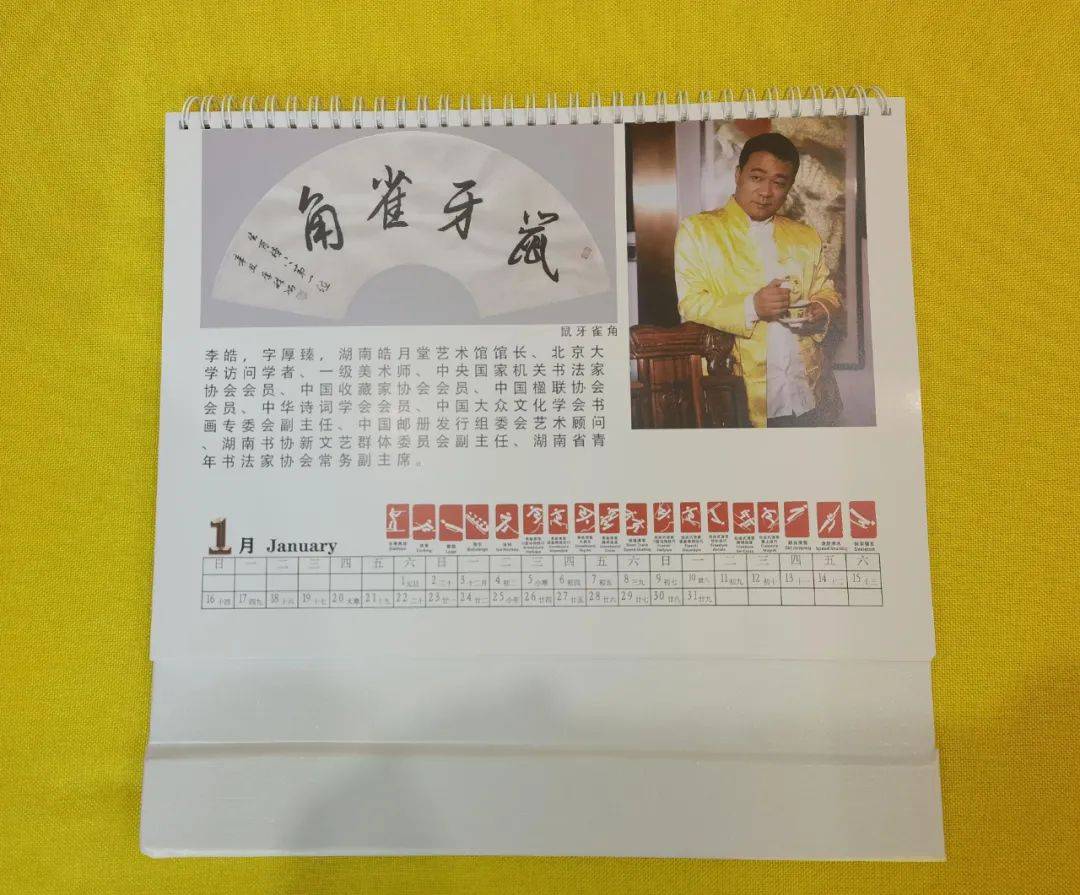 鼠牙雀角
鼠牙雀角
李皓，字厚臻，湖南皓月堂艺术馆馆长、北京大
学访问学者、一级美术师、中央国家机关书法家
协会会员、中国收藏家协会会员、中国楹联协会
会员、中华诗词学会会员、中国大众文化学会书
画专委会副主任、中国邮册发行组委会艺术顾问
、湖南书协新文艺群体委员会副主任、湖南省青
年书法家协会常务副主席。
1月 January
日 一 二 三 四 五 六 日 一 二 三 四 五 六 日 一 二 三 四 五 六
1元旦 2三十 3十二月 4初二 5小寒 6初四 7初五 8三九 9初七 10腊八 11初九 12初十 13十一 14十二 15十三
16十四 17四九 18十六 19十七 20大寒 21十九 22二十 23廿一 24廿二 25小年 26廿四 27廿五 28廿六 29廿七 30廿八 31廿九